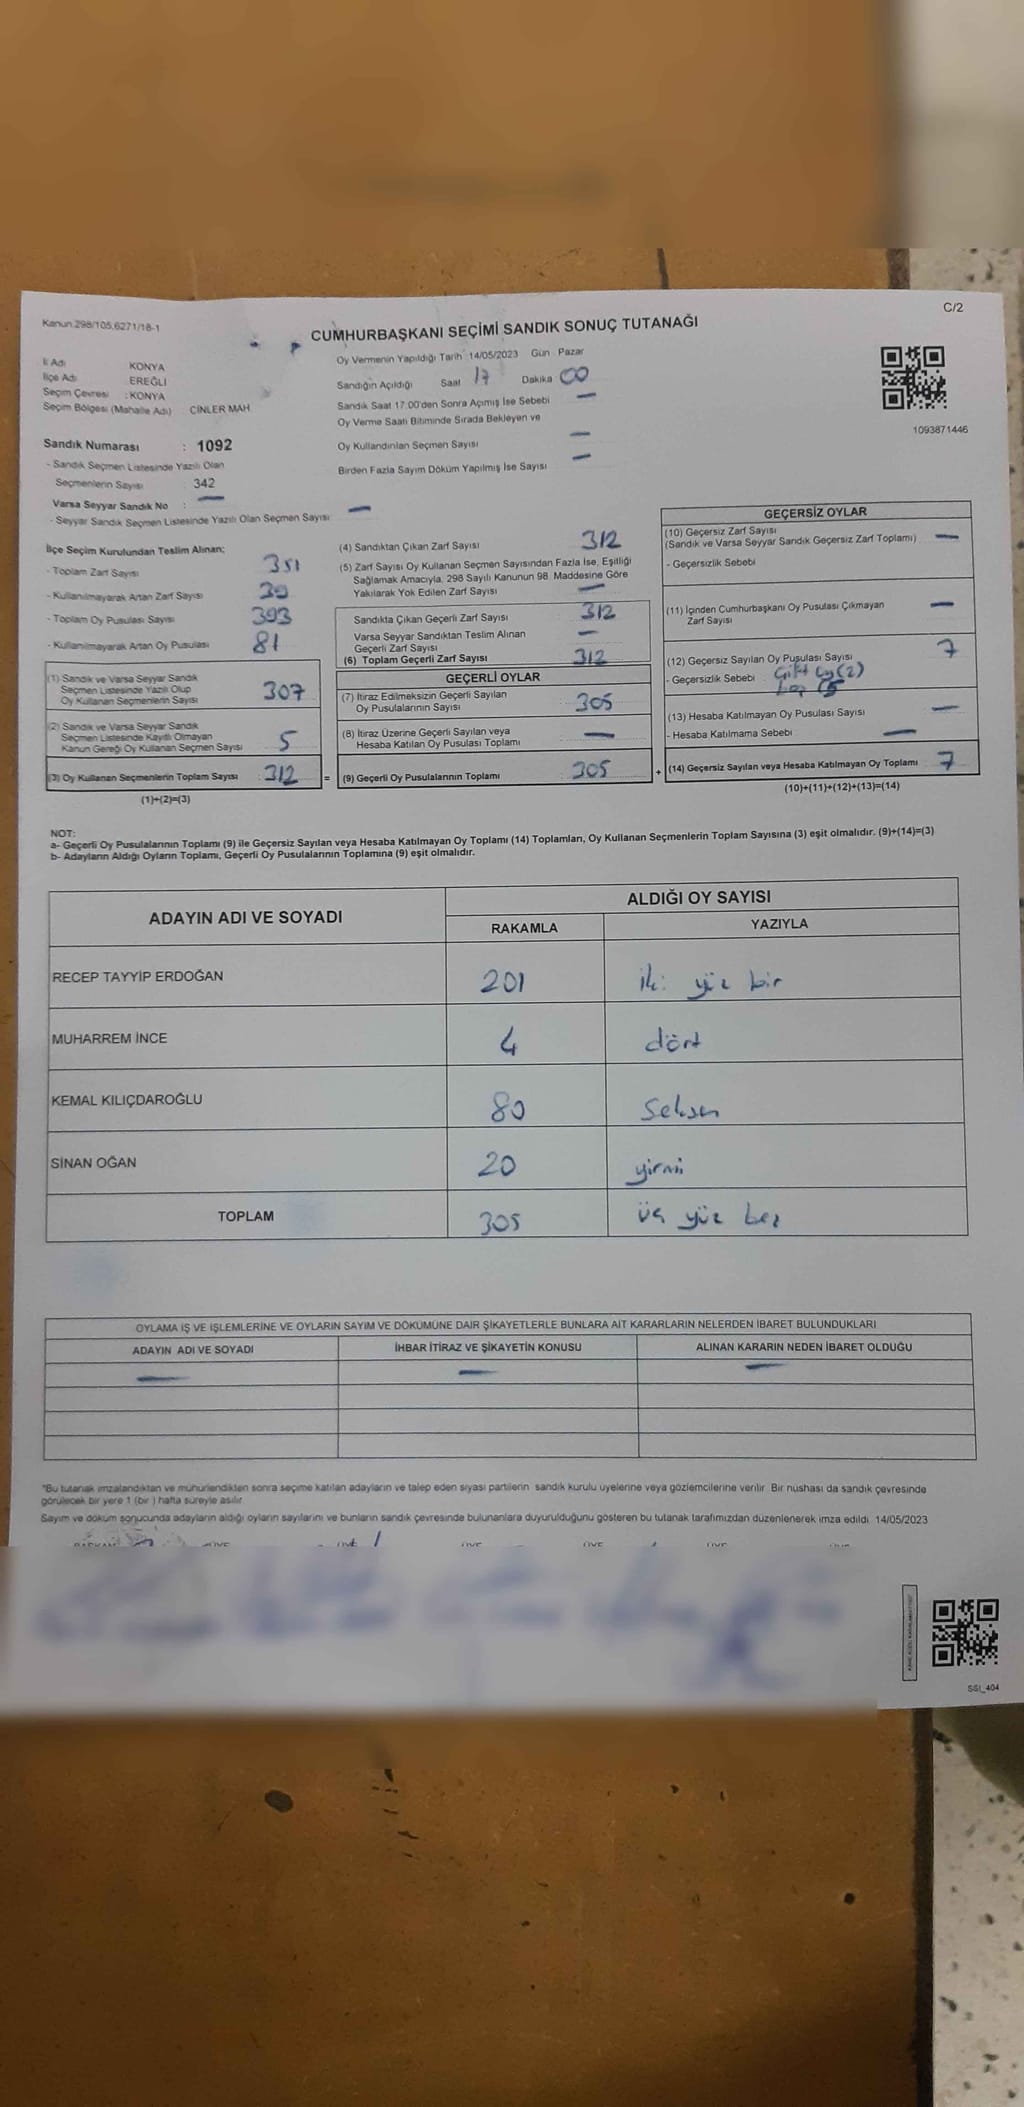 C/2
Kanun:298/105,6271/18-1
CUMHURBAŞKANI SEÇİMİ SANDIK SONUÇ TUTANAĞI
İl Adı : KONYA
İlçe Adı : EREĞLİ
Seçim Çevresi : KONYA
Seçim Bölgesi (Mahalle Adı) CİNLER MAH
Sandık Numarası : 1092
- Sandık Seçmen Listesinde Yazılı Olan
Seçmenlerin Sayısı 342
Varsa Seyyar Sandık No : —
- Seyyar Sandık Seçmen Listesinde Yazılı Olan Seçmen Sayısı —
Oy Vermenin Yapıldığı Tarih 14/05/2023 Gün : Pazar
Sandığın Açıldığı Saat 17 Dakika 00
Sandık Saat 17:00'den Sonra Açımış İse Sebebi —
Oy Verme Saati Bitiminde Sırada Bekleyen ve
Oy Kullandırılan Seçmen Sayısı —
Birden Fazla Sayım Döküm Yapılmış İse Sayısı —
1093871446
İlçe Seçim Kurulundan Teslim Alınan;
- Toplam Zarf Sayısı 351
- Kullanılmayarak Artan Zarf Sayısı 39
- Toplam Oy Pusulası Sayısı 393
- Kullanılmayarak Artan Oy Pusulası 81
(1) Sandık ve Varsa Seyyar Sandık
Seçmen Listesinde Yazılı Olup
Oy Kullanan Seçmenlerin Sayısı 307
(2) Sandık ve Varsa Seyyar Sandık
Seçmen Listesinde Kayıtlı Olmayan
Kanun Gereği Oy Kullanan Seçmen Sayısı 5
(3) Oy Kullanan Seçmenlerin Toplam Sayısı : 312 =
(1)+(2)=(3)
(4) Sandıktan Çıkan Zarf Sayısı 312
(5) Zarf Sayısı Oy Kullanan Seçmen Sayısından Fazla İse, Eşitliği
Sağlamak Amacıyla, 298 Sayılı Kanunun 98. Maddesine Göre
Yakılarak Yok Edilen Zarf Sayısı —
Sandıkta Çıkan Geçerli Zarf Sayısı 312
Varsa Seyyar Sandıktan Teslim Alınan
Geçerli Zarf Sayısı —
(6) Toplam Geçerli Zarf Sayısı 312
GEÇERLİ OYLAR
(7) İtiraz Edilmeksizin Geçerli Sayılan
Oy Pusulalarının Sayısı 305
(8) İtiraz Üzerine Geçerli Sayılan veya
Hesaba Katılan Oy Pusulası Toplamı —
(9) Geçerli Oy Pusulalarının Toplamı 305 +
GEÇERSİZ OYLAR
(10) Geçersiz Zarf Sayısı
(Sandık ve Varsa Seyyar Sandık Geçersiz Zarf Toplamı) —
- Geçersizlik Sebebi
(11) İçinden Cumhurbaşkanı Oy Pusulası Çıkmayan
Zarf Sayısı —
(12) Geçersiz Sayılan Oy Pusulası Sayısı 7
- Geçersizlik Sebebi : Çift oy (2)
(5
(13) Hesaba Katılmayan Oy Pusulası Sayısı —
- Hesaba Katılmama Sebebi —
(14) Geçersiz Sayılan veya Hesaba Katılmayan Oy Toplamı : 7
(10)+(11)+(12)+(13)=(14)
NOT:
a- Geçerli Oy Pusulalarının Toplamı (9) ile Geçersiz Sayılan veya Hesaba Katılmayan Oy Toplamı (14) Toplamları, Oy Kullanan Seçmenlerin Toplam Sayısına (3) eşit olmalıdır. (9)+(14)=(3)
b- Adayların Aldığı Oyların Toplamı, Geçerli Oy Pusulalarının Toplamına (9) eşit olmalıdır.
ADAYIN ADI VE SOYADI ALDIĞI OY SAYISI
RAKAMLA YAZIYLA
RECEP TAYYİP ERDOĞAN 201 iki yüz bir
MUHARREM İNCE 4 dört
KEMAL KILIÇDAROĞLU 80 Seksen
SİNAN OĞAN 20 yirmi
TOPLAM 305 üç yüz beş
OYLAMA İŞ VE İŞLEMLERİNE VE OYLARIN SAYIM VE DÖKÜMÜNE DAİR ŞİKAYETLERLE BUNLARA AİT KARARLARIN NELERDEN İBARET BULUNDUKLARI
ADAYIN ADI VE SOYADI İHBAR İTİRAZ VE ŞİKAYETİN KONUSU ALINAN KARARIN NEDEN İBARET OLDUĞU
— — —
*Bu tutanak imzalandıktan ve mühürlendikten sonra seçime katılan adayların ve talep eden siyasi partilerin sandık kurulu üyelerine veya gözlemcilerine verilir. Bir nüshası da sandık çevresinde
görülecek bir yere 1 (bir ) hafta süreyle asılır
Sayım ve döküm sonucunda adayların aldığı oyların sayılarını ve bunların sandık çevresinde bulunanlara duyurulduğunu gösteren bu tutanak tarafımızdan düzenlenerek imza edildi. 14/05/2023
BAŞKAN ÜYE ÜYE ÜYE ÜYE ÜYE
SSI_404